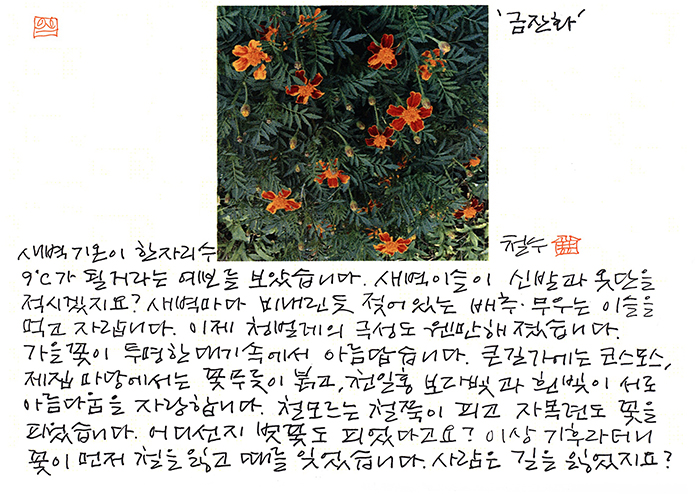 '금잔화'
철수
새벽기온이 한자리수
9℃가 될거라는 예보를 보았습니다. 새벽이슬이 신발과 옷단을
적시겠지요? 새벽마다 비내린듯 젖어있는 배추·무우는 이슬을
먹고 자랍니다. 이제 청벌레의 극성도 웬만해졌습니다.
가을꽃이 투명한 대기속에서 아름답습니다. 큰길가에는 코스모스,
제집 마당에서는 꽃무릇이 붉고, 천일홍 보라빛과 흰빛이 서로
아름다움을 자랑합니다. 철모르는 철쭉이 피고 자목련도 꽃을
피웠습니다. 어디선지 벚꽃도 피었다고요? 이상 기후라더니
꽃이 먼저 철을 잃고 때를 잊었습니다. 사람은 길을 잃었지요?